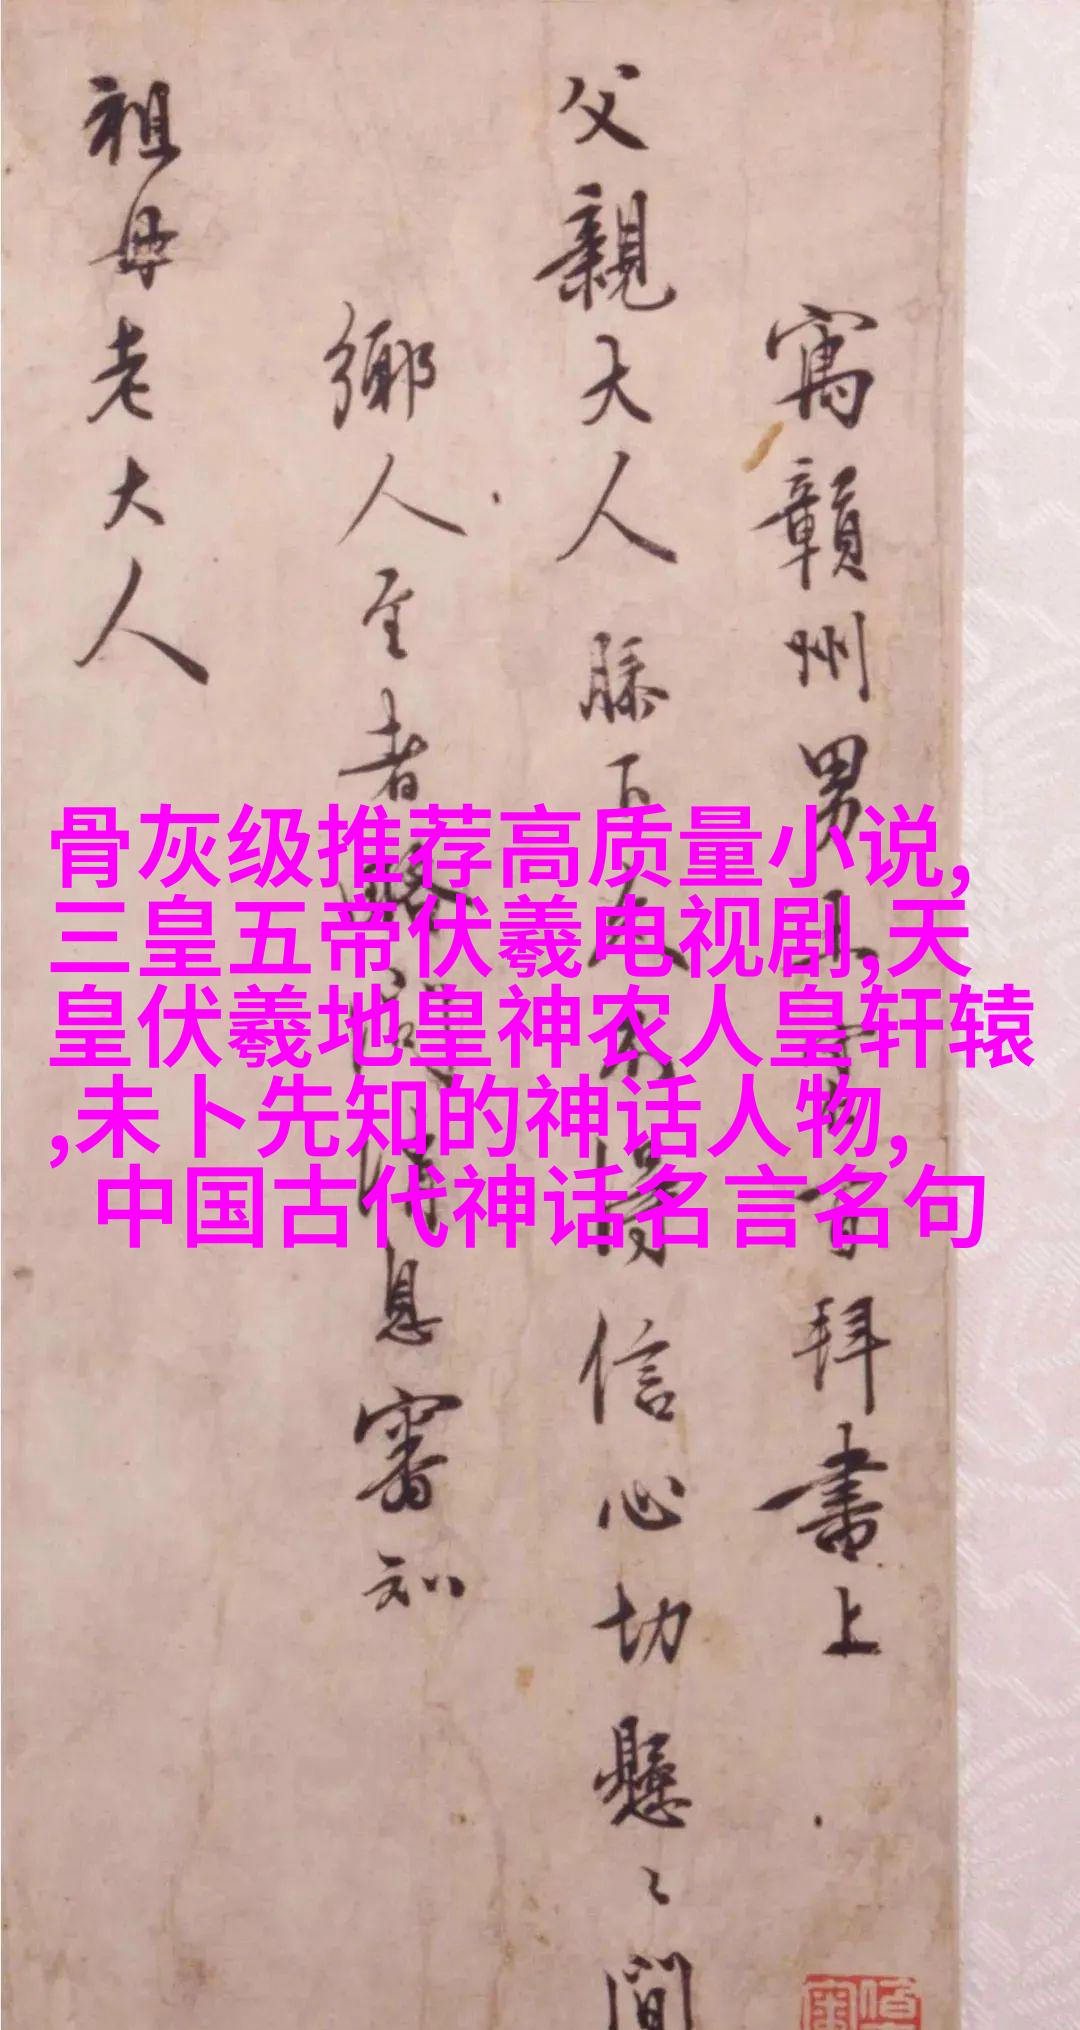 寓贛州男王守仁百拜書上
父親大人膝下久不得信心切懸〻間
鄉人至者略
息審知
祖母老大人
骨灰级推荐高质量小说,
三皇五帝伏羲电视剧,天
皇伏羲地皇神农人皇轩辕
,未卜先知的神话人物,
中国古代神话名言名句